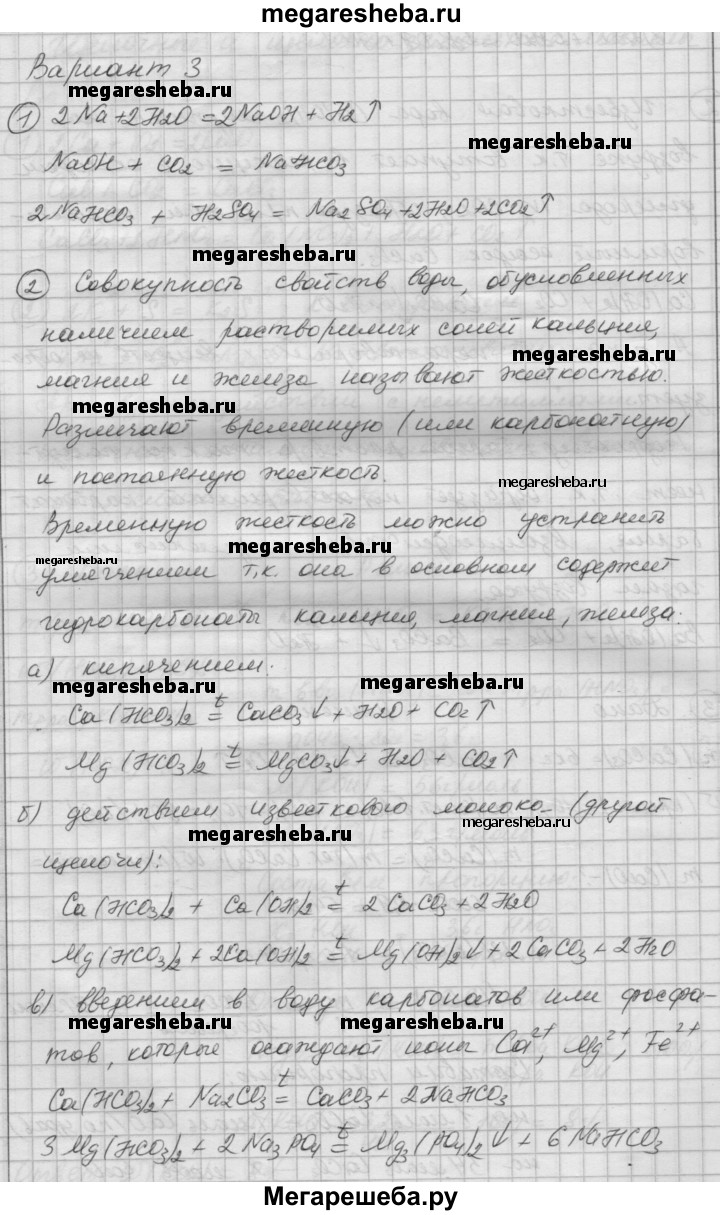 megaresheba.ru
Вариант 3
megaresheba.ru
1 2Na+2H2O =2NaOH + H2↑
megaresheba.ru
NaOH + CO2 = NaHCO3
2NaHCO3 + H2SO4 = Na2SO4+2H2O+2CO2↑
megaresheba.ru
2 Совокупность свойств воды, обусловленных
наличием растворимых солей кальция,
megaresheba.ru
магния и железа называют жесткостью.
megaresheba.ru
Различают временную (или карбонатную)
и постоянную жесткость.
megaresheba.ru
Временную жесткость можно устранить
megaresheba.ru
megaresheba.ru
умягчением т.к. она в основном содержит
гидрокарбонаты кальция, магния, железа:
а) кипячением:
megaresheba.ru
megaresheba.ru
Ca(HCO3)2 =t CaCO3↓ + H2O + CO2↑
Mg(HCO3)2 =t MgCO3↓ + H2O + CO2↑
б) действием известкового молока (другой
megaresheba.ru
megaresheba.ru
щелочи):
Ca(HCO3)2 + Ca(OH)2 =t 2CaCO3 +2H2O
Mg(HCO3)2 + 2Ca(OH)2 =t Mg(OH)2↓ + 2CaCO3 + 2H2O
в) введением в воду карбонатов или фосфа-
megaresheba.ru
megaresheba.ru
тов, которые осаждают ионы Ca2+, Mg2+, Fe2+
Ca(HCO3)2 + Na2CO3 =t CaCO3 + 2NaHCO3
3Mg(HCO3)2 + 2Na3PO4 =t Mg3(PO4)2↓ + 6NaHCO3
Мегарешеба.ру